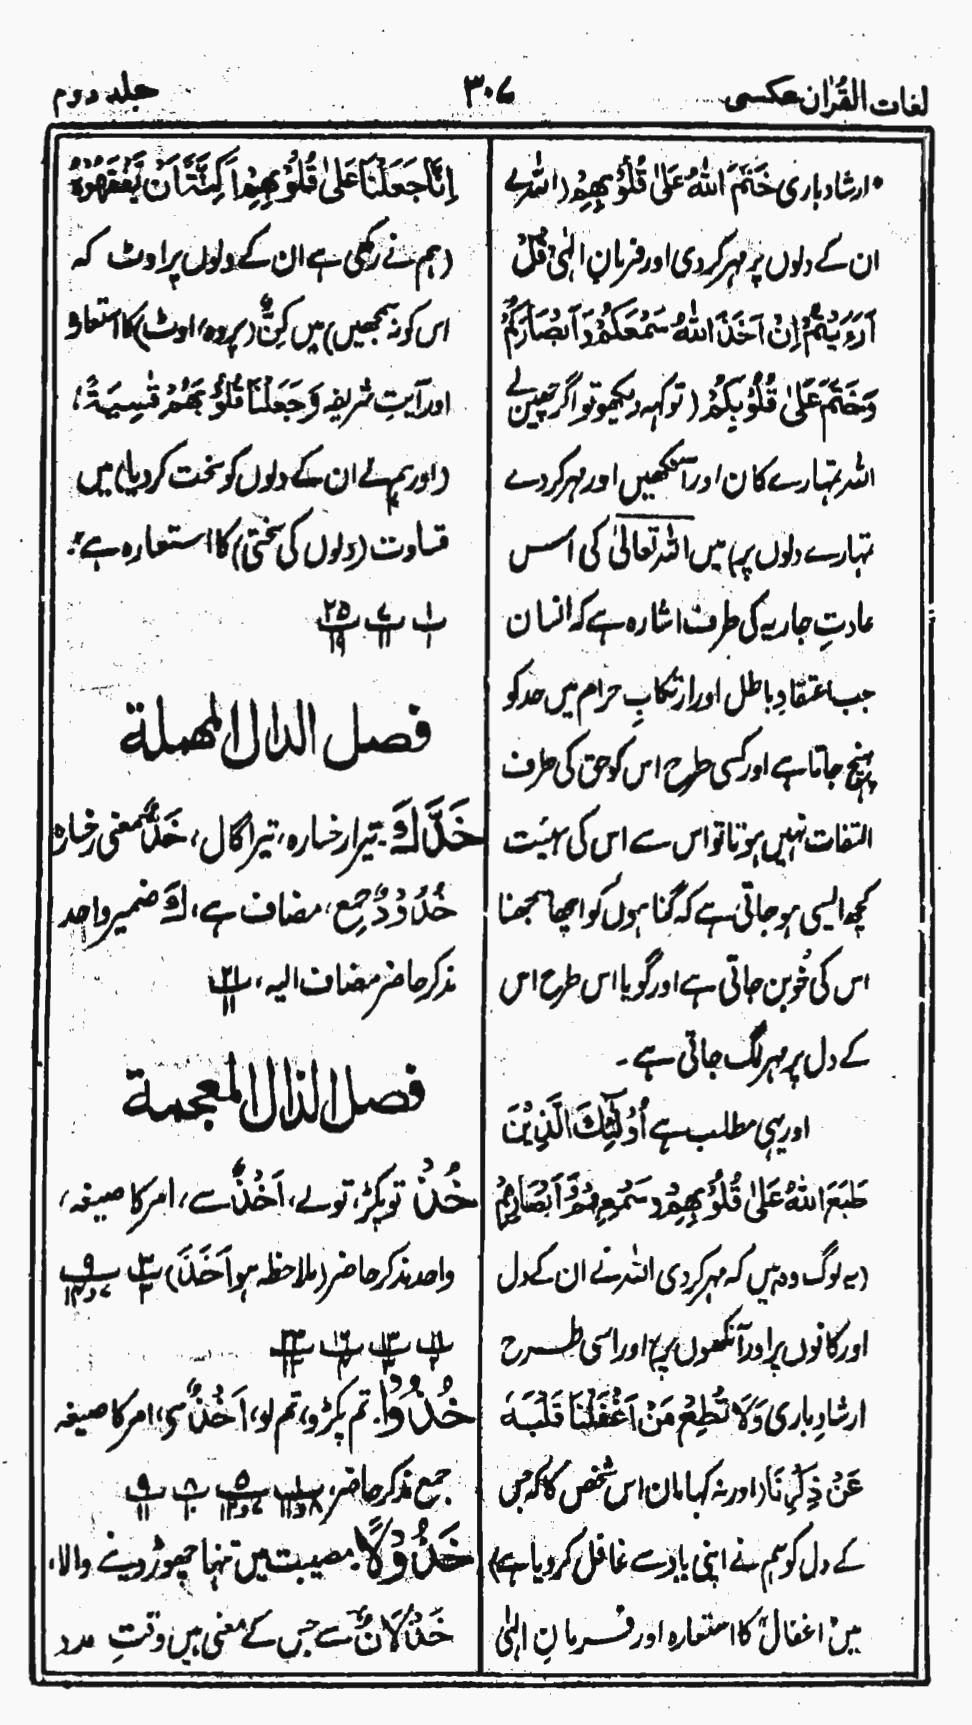 لغات القرآن عکسی
۳۰۷
جلد دوم
ارشاد باری خَتَمَ اللهُ عَلٰی قُلُوْبِهِمْ (اللہ نے
ان کے دلوں پر مہر کر دی اور فرمانِ الٰہی قُلْ
اَرَءَيْتُمْ اِنْ اَخَذَ اللهُ سَمْعَكُمْ وَ اَبْصَارَكُمْ
وَخَتَمَ عَلٰی قُلُوْبِكُمْ (تو کہہ دیکھو تو اگر چھین لے
اللہ تمہارے کان اور آنکھیں اور مہر کر دے
تمہارے دلوں پر) میں اللہ تعالیٰ کی اس
عادتِ جاریہ کی طرف اشارہ ہے کہ انسان
جب اعتقادِ باطل اور ارتکابِ حرام میں حد کو
پہنچ جاتا ہے اور کسی طرح اس کو حق کی طرف
التفات نہیں ہوتا تو اس سے اس کی ہیئت
کچھ ایسی ہو جاتی ہے کہ گناہوں کو اچھا سمجھنا
اس کی خُو بن جاتی ہے اور گویا اس طرح اس
کے دل پر مہر لگ جاتی ہے۔
اور یہی مطلب ہے اُولٰٓئِكَ الَّذِيْنَ
طَبَعَ اللهُ عَلٰی قُلُوْبِهِمْ وَسَمْعِهِمْ وَاَبْصَارِهِمْ
(یہ لوگ وہ ہیں کہ مہر کر دی اللہ نے ان کے دل
اور کانوں پر اور آنکھوں پر) اور اسی طرح
ارشادِ باری وَلَا تُطِعْ مَنْ اَغْفَلْنَا قَلْبَهٗ
عَنْ ذِكْرِنَا (اور نہ کہا مان اس شخص کا کہ جس
کے دل کو ہم نے اپنی یاد سے غافل کر دیا ہے)
میں اغفال کا استعارہ اور فرمانِ الٰہی
اِنَّا جَعَلْنَا عَلٰی قُلُوْبِهِمْ اَكِنَّةً اَنْ يَّفْقَهُوْهُ
(ہم نے رکھی ہے ان کے دلوں پر اوٹ کہ
اس کو نہ سمجھیں) میں کِنٌّ (پردہ، اوٹ) کا استعارہ
اور آیتِ شریفہ وَ جَعَلْنَا قُلُوْبَهُمْ قٰسِيَةً،
(اور ہم نے ان کے دلوں کو سخت کر دیا) میں
قساوت (دلوں کی سختی) کا استعارہ ہے"۔
پ ۱/۱ پ ۷/۱۱ پ ۲۵/۱۹
فصل الدال المہملة
خَدَّكَ۔ تیرا رخسارہ، تیرا گال، خَدٌّ بمعنی رخسارہ
خُدُوْدٌ جمع، مضاف ہے، كَ ضمیر واحد
مذکر حاضر مضاف الیہ، پ ۲۱/۱۱
فصل الذال المعجمة
خُذْ تو پکڑ، تو لے، اَخْذٌ سے، امر کا صیغہ،
واحد مذکر حاضر (ملاحظہ ہو اَخَذَ) پ ۳/۳ پ ۹/۷و۱۴
خُذُوْا۔ تم پکڑو، تم لو، اَخْذٌ سے، امر کا صیغہ
جمع مذکر حاضر، پ ۱/۸و۱۱ پ ۵/۷و۱۲ پ ۸/۱۰ پ ۹/۱۱
خَذُوْلًا۔ مصیبت میں تنہا چھوڑ دینے والا،
خَذْلَانٌ سے جس کے معنی ہیں وقتِ مدد